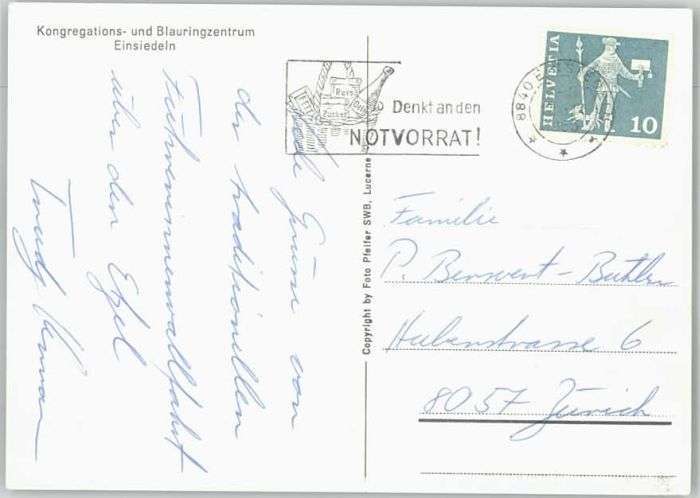 Kongregations- und Blauringzentrum
Einsiedeln
Denkt an den
NOTVORRAT!
8840
HELVETIA
10
Reis
Zucker
Grüsse von
der traditionellen
Führerinnenwallfahrt
über den Etzel
Trudy
Copyright by Foto Pfeifer SWB, Lucerne
Familie
P. Benwert-Bühler
Huberstrasse 6
8057 Zürich